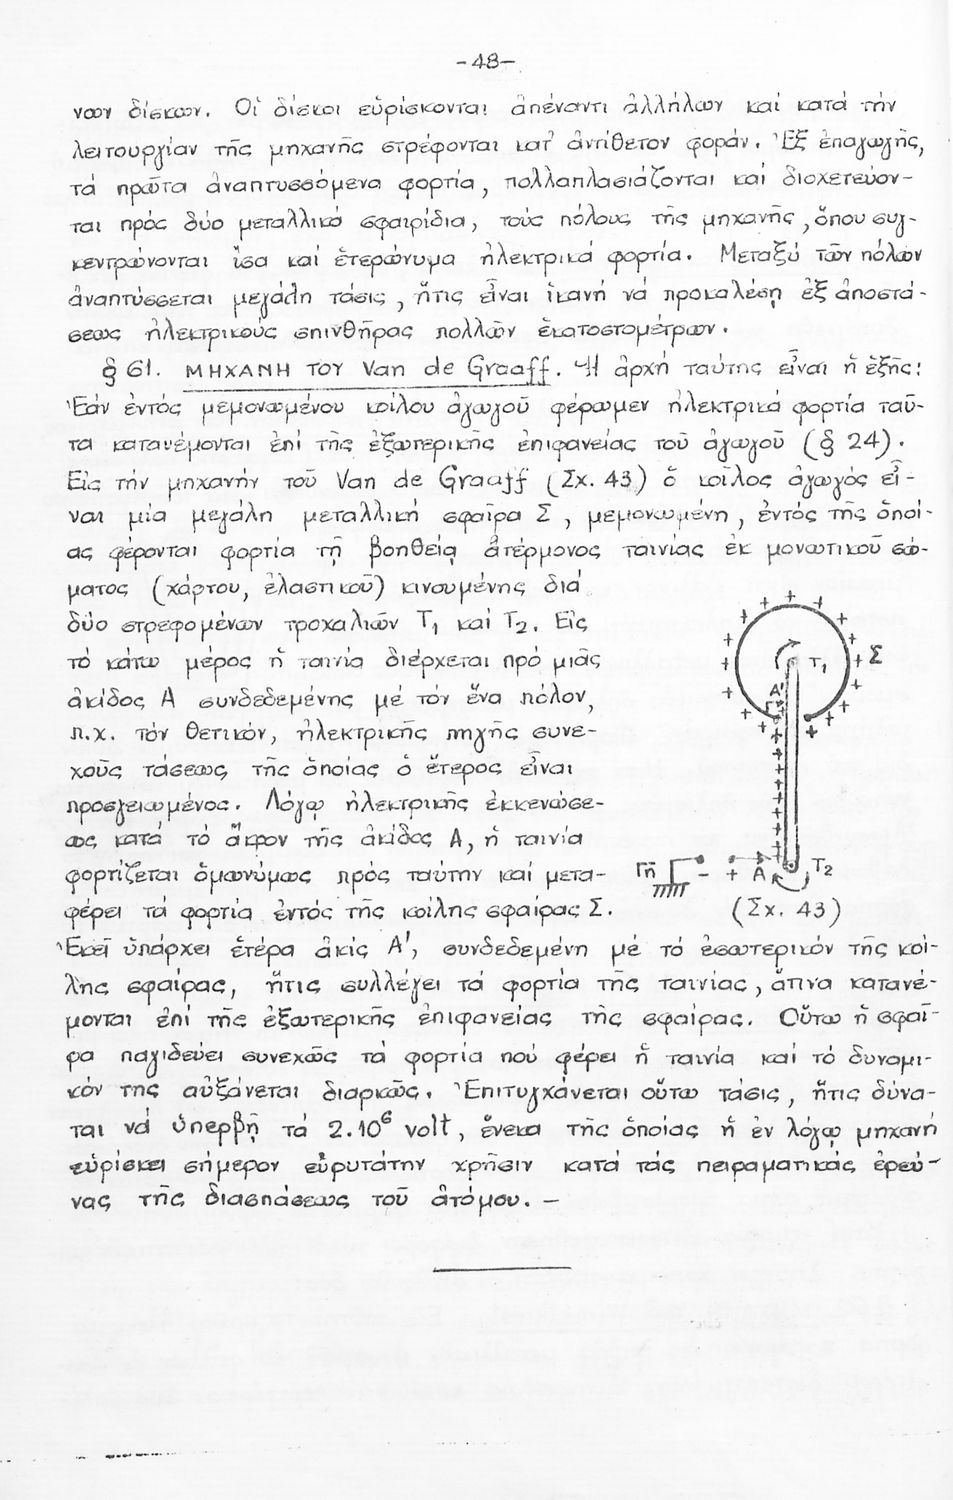 -48-
νων δίσκων. Οἱ δίσκοι εὑρίσκονται ἀπέναντι ἀλλήλων καί κατά τήν
λειτουργίαν τῆς μηχανῆς στρέφονται κατ' ἀντίθετον φοράν. Ἐξ ἐπαγωγῆς,
τά πρῶτα ἀναπτυσσόμενα φορτία, πολλαπλασιάζονται καί διοχετεύον-
ται πρός δύο μεταλλικά σφαιρίδια, τούς πόλους τῆς μηχανῆς, ὅπου συγ-
κεντρώνονται ἴσα καί ἑτερώνυμα ἠλεκτρικά φορτία. Μεταξύ τῶν πόλων
ἀναπτύσσεται μεγάλη τάσις, ἥτις εἶναι ἱκανή νά προκαλέσῃ ἐξ ἀποστά-
σεως ἠλεκτρικούς σπινθῆρας πολλῶν ἑκατοστομέτρων.
§ 61. ΜΗΧΑΝΗ ΤΟΥ Van de Graaff. Ἡ ἀρχή ταύτης εἶναι ἡ ἑξῆς:
Ἐάν ἐντός μεμονωμένου κοίλου ἀγωγοῦ φέρωμεν ἠλεκτρικά φορτία ταῦ-
τα κατανέμονται ἐπί τῆς ἐξωτερικῆς ἐπιφανείας τοῦ ἀγωγοῦ (§ 24).
Εἰς τήν μηχανήν τοῦ Van de Graaff (Σχ. 43) ὁ κοῖλος ἀγωγός εἶ-
ναι μία μεγάλη μεταλλική σφαῖρα Σ, μεμονωμένη, ἐντός τῆς ὁποί-
ας φέρονται φορτία τῇ βοηθείᾳ ἀτέρμονος ταινίας ἐκ μονωτικοῦ σώ-
ματος (χάρτου, ἐλαστικοῦ) κινουμένης διά
δύο στρεφομένων τροχαλιῶν Τ₁ καί Τ₂. Εἰς
τό κάτω μέρος ἡ ταινία διέρχεται πρό μιᾶς
ἀκίδος Α συνδεδεμένης μέ τόν ἕνα πόλον,
π.χ. τόν θετικόν, ἠλεκτρικῆς πηγῆς συνε-
χοῦς τάσεως τῆς ὁποίας ὁ ἕτερος εἶναι
προσγειωμένος. Λόγῳ ἠλεκτρικῆς ἐκκενώσε-
ως κατά τό ἄκρον τῆς ἀκίδος Α, ἡ ταινία
φορτίζεται ὁμωνύμως πρός ταύτην καί μετα-
φέρει τά φορτία ἐντός τῆς κοίλης σφαίρας Σ.
Ἐκεῖ ὑπάρχει ἑτέρα ἀκίς Α', συνδεδεμένη μέ τό ἐσωτερικόν τῆς κοί-
λης σφαίρας, ἥτις συλλέγει τά φορτία τῆς ταινίας, ἅτινα κατανέ-
μονται ἐπί τῆς ἐξωτερικῆς ἐπιφανείας τῆς σφαίρας. Οὕτω ἡ σφαῖ-
ρα παγιδεύει συνεχῶς τά φορτία πού φέρει ἡ ταινία καί τό δυναμι-
κόν της αὐξάνεται διαρκῶς. Ἐπιτυγχάνεται οὕτω τάσις, ἥτις δύνα-
ται νά ὑπερβῇ τά 2.10⁶ volt, ἕνεκα τῆς ὁποίας ἡ ἐν λόγῳ μηχανή
εὑρίσκει σήμερον εὐρυτάτην χρῆσιν κατά τάς πειραματικάς ἐρεύ-
νας τῆς διασπάσεως τοῦ ἀτόμου. —
Σ
Τ₁
Α'
Γῆ
- +
Α
Τ₂
(Σχ. 43)